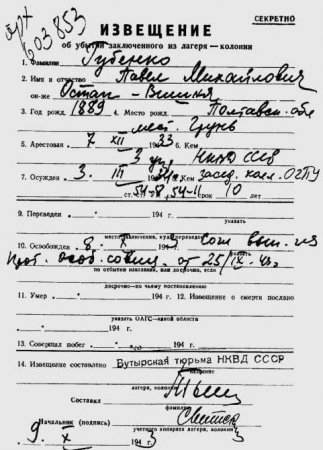 СЕКРЕТНО
арх
603853
ИЗВЕЩЕНИЕ
об убытии заключенного из лагеря — колонии
1. Фамилия Губенко
2. Имя и отчество Павел Михайлович
он-же Остап - Вишня
3. Год рожд. 1889 4. Место рожд. Полтавск. обл.
мест. Грунь
5. Арестован 7 XII 1933 6. Кем
3 упр. НКВД СССР
7. Осужден 3. III 1934 г. Кем засед. колл. ОГПУ
ст. 54-8, 54-11 срок 10 лет
9. Переведен " " 194 г.
указать
место назначения, куда переведен
10. Освобожден 8. X 1943 сог. вып. из
прот. особ. совещ. от 25/IX-43 г.
по отбытии наказания, или досрочно, если
досрочно—по чьему постановлению
11. Умер " " 194 г. 12. Извещение о смерти послано
указать ОАГС—какой области
13. Совершил побег " " 194 г.
указать
14. Извещение составлено Бутырская тюрьма НКВД СССР
название
лагеря, колонии
Составил
фамилия
Начальник (подпись)
учетного аппарата лагеря, колонии
" 9 " X 1943